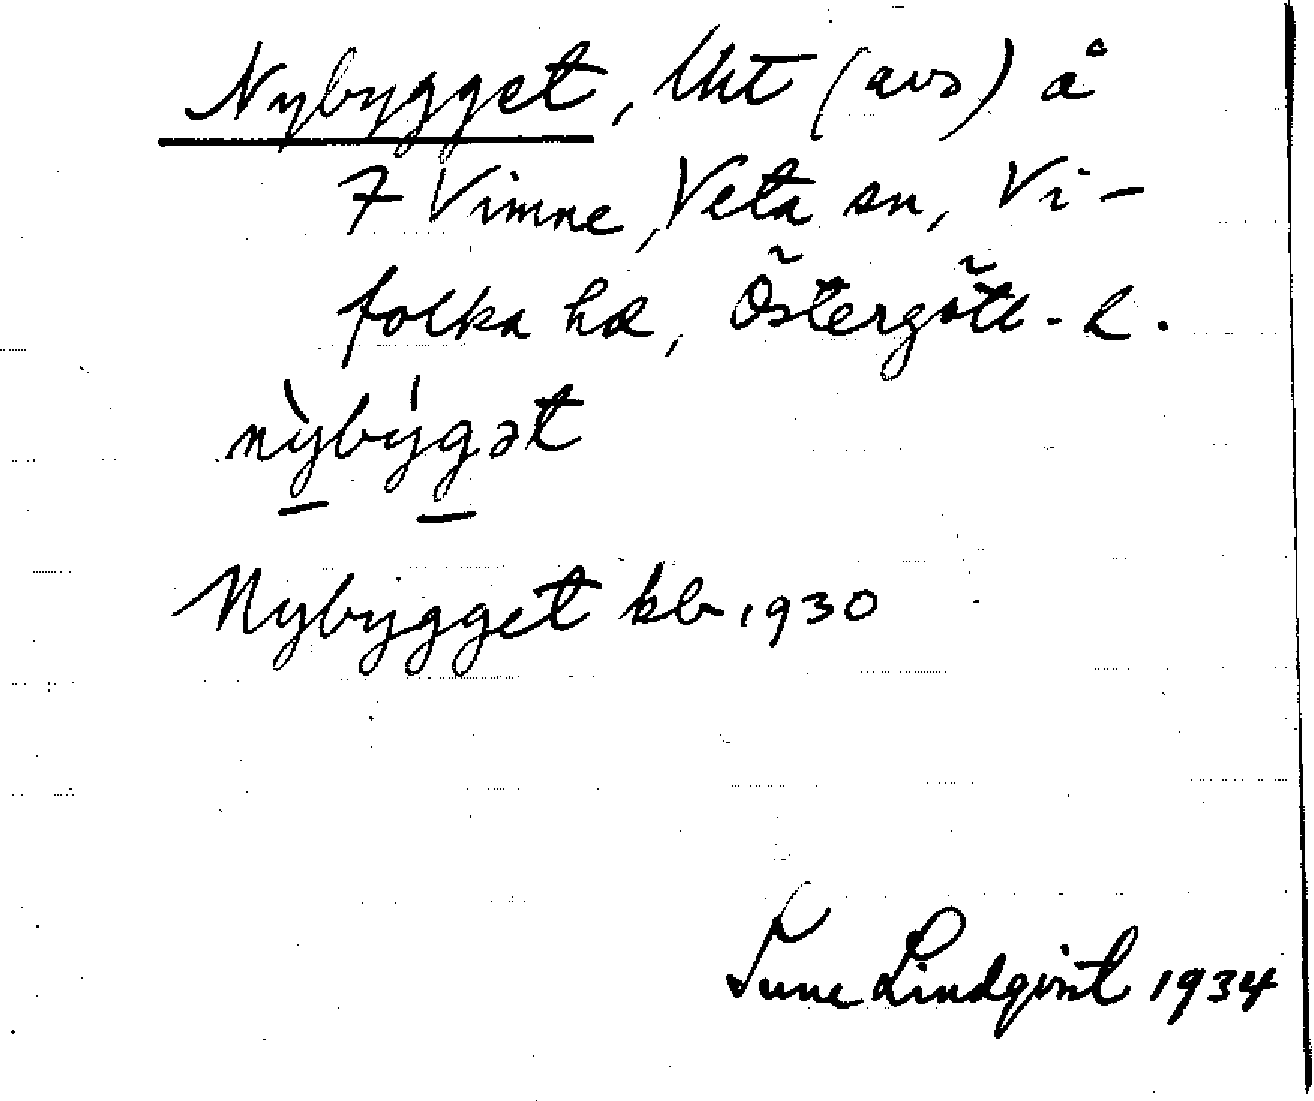 Nybygget, lht (avs) å
7 Vimne, Veta sn, Vi-
folka hd, Östergötl. l.
nỳbýgət
Nybygget kb 1930
Sune Lindqvist 1934